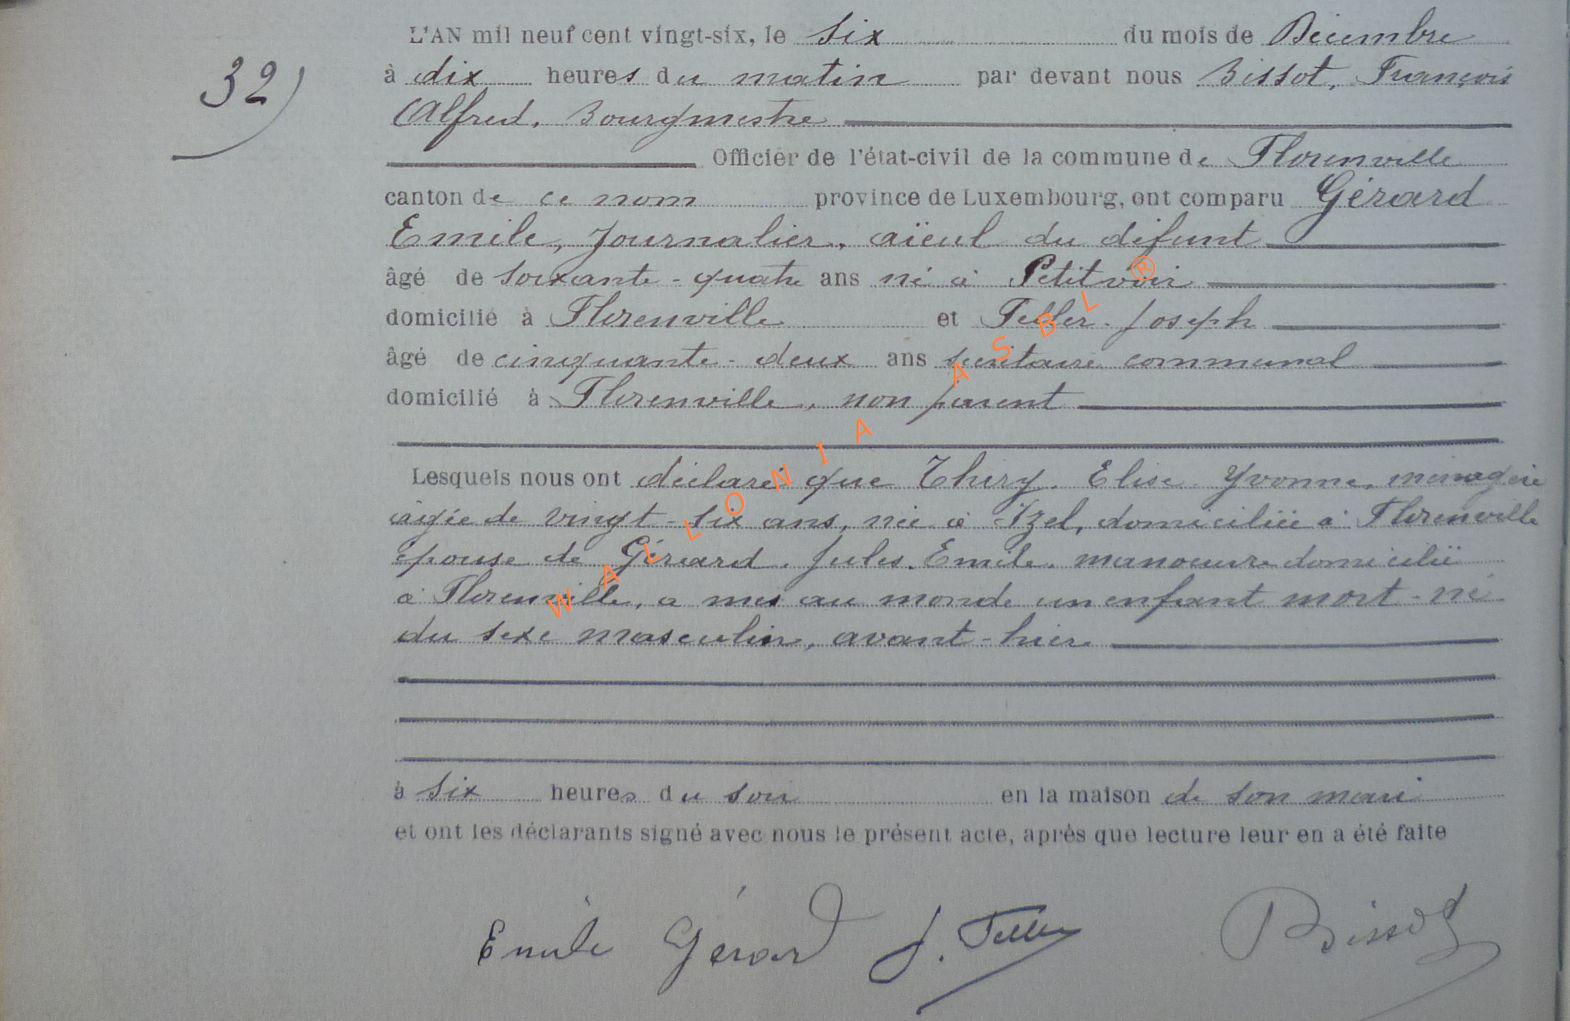 L'AN mil neuf cent vingt-six, le six du mois de Décembre
32) à dix heures du matin par devant nous Bissot, François
Alfred, Bourgmestre
Officier de l'état-civil de la commune de Florenville
canton de ce nom province de Luxembourg, ont comparu Gérard
Emile, journalier, aïeul du défunt
âgé de soixante-quatre ans né à Petitvoir
domicilié à Florenville et Feller Joseph
âgé de cinquante-deux ans secrétaire communal
domicilié à Florenville, non parent
Lesquels nous ont déclaré que Thiry, Elise Yvonne, ménagère
âgée de vingt-six ans, née à Izel, domiciliée à Florenville
épouse de Gérard, Jules, Emile, manoeuvre domicilié
à Florenville, a mis au monde un enfant mort-né
du sexe masculin, avant-hier
à six heures du soir en la maison de son mari
et ont les déclarants signé avec nous le présent acte, aprés que lecture leur en a été faite
Emile Gérard J. Feller Bissot
WALLONIA ASBL ®